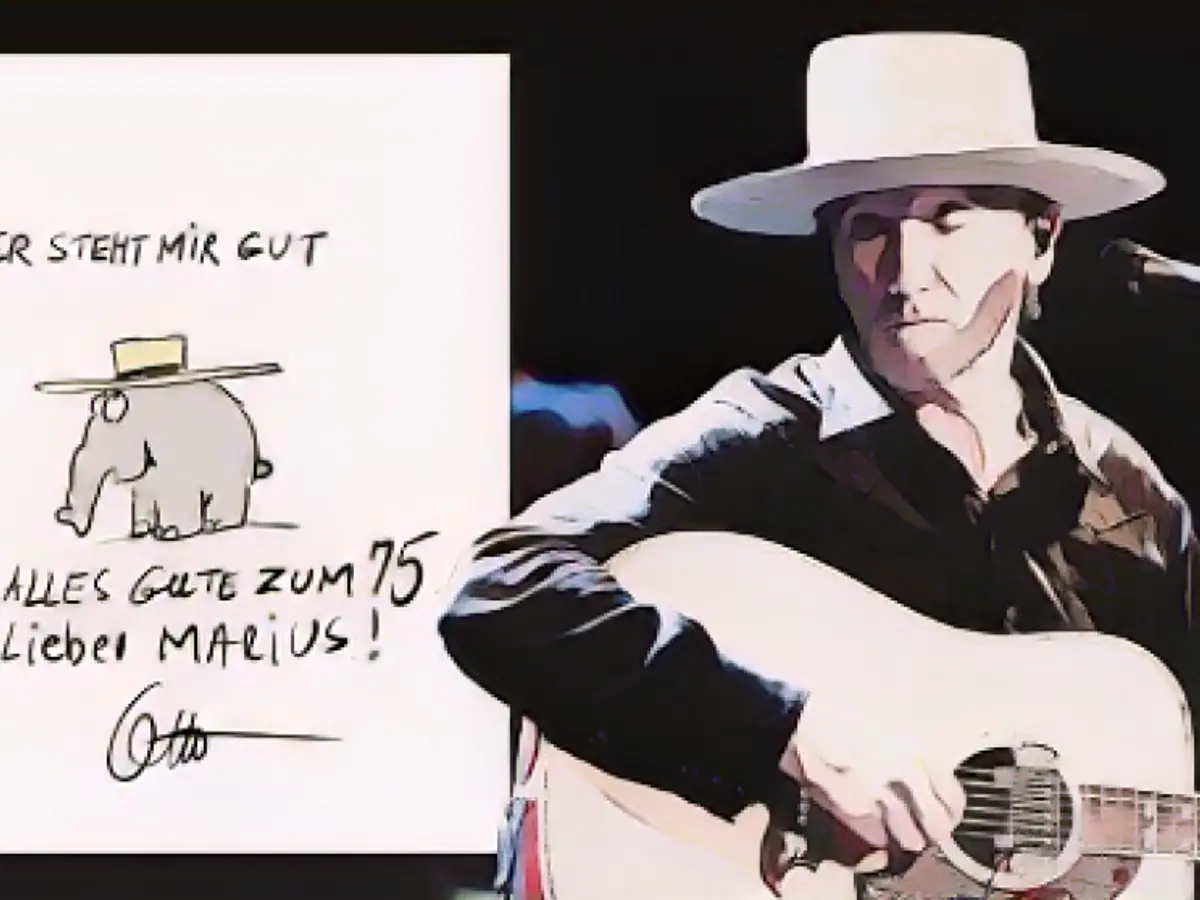 ER STEHT MiR GUT
ALLES GUTE ZUM 75
Lieber MARiUS!
Otto